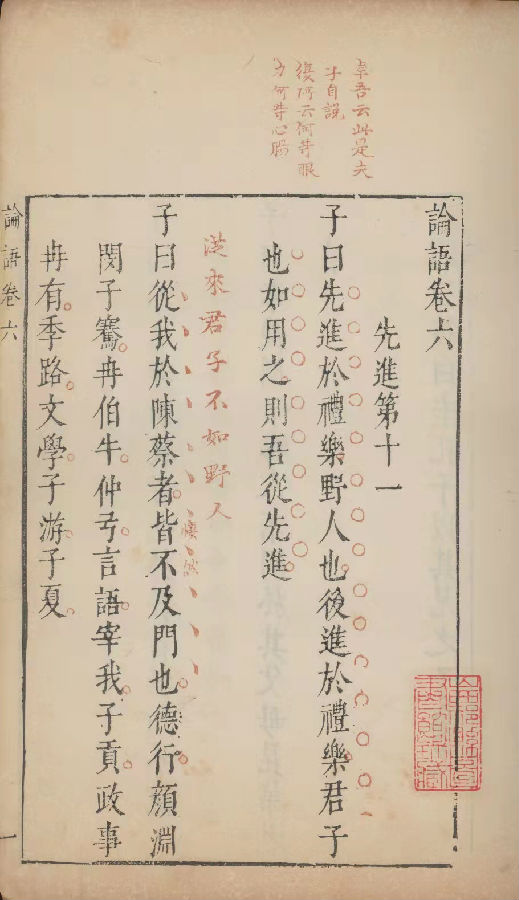 卓吾云此是夫
子自說
復所云何等眼
力何等心腸
論語卷六
先進第十一
子曰先進於禮樂野人也後進於禮樂君子
也如用之則吾從先進
從來君子不如野人
子曰從我於陳蔡者皆不及門也德行顏淵
悽然
閔子騫冉伯牛仲弓言語宰我子貢政事
冉有季路文學子游子夏
論語卷六
一